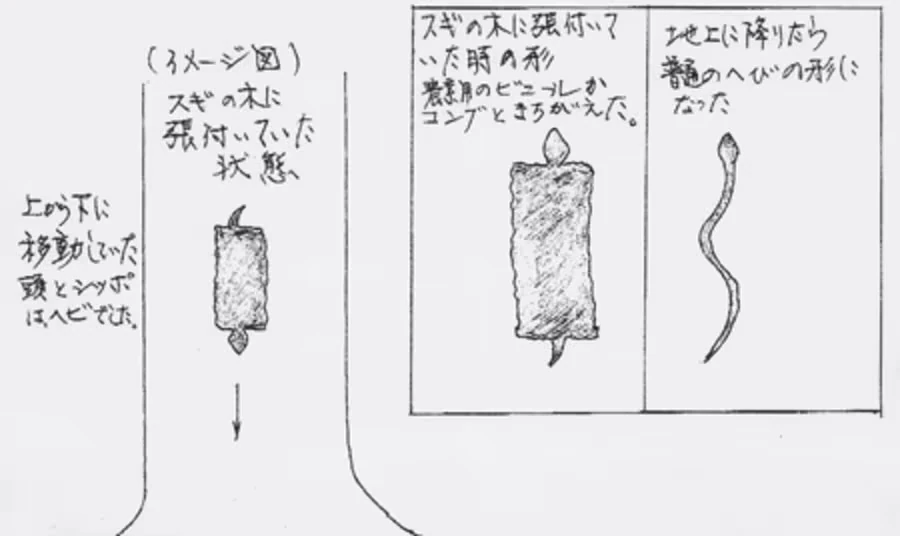 (イメージ図)
スギの木に
張付いていた
状態、
上から下に
移動していた
頭とシッポ
は、ヘビでした。
スギの木に張付いて
いた時の形
農業用のビニールか
コンブとまちがえた。
地上に降りたら
普通のヘびの形に
なった